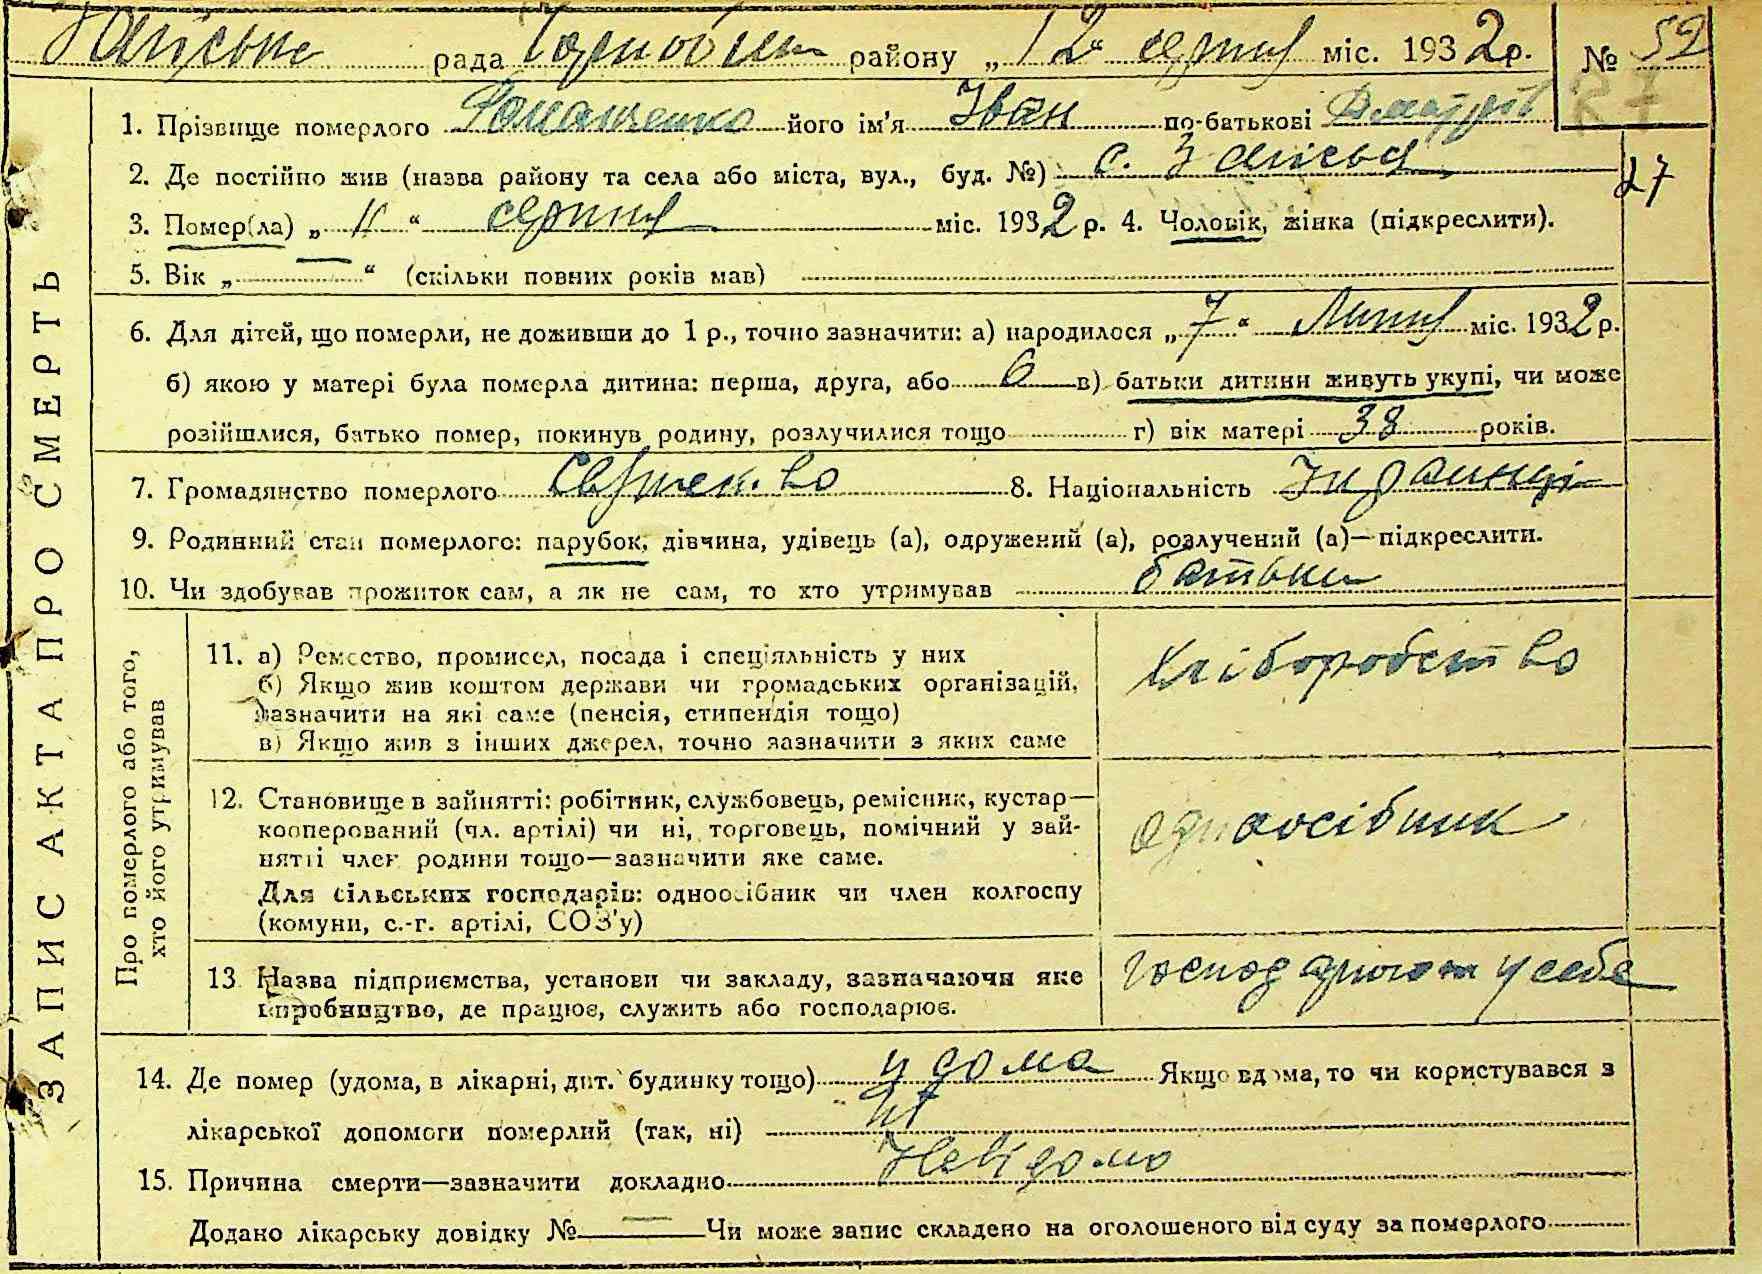 рада району „12“ серпня міс. 1932 р. № 59
1. Прізвище померлого Ромащенко його ім'я Іван по-батькові Дмитров
27
2. Де постійно жив (назва району та села або міста, вул., буд. №) с. Залісья
3. Помер(ла) „11“ серпня міс. 1932 р. 4. Чоловік, жінка (підкреслити).
5. Вік „—“ (скільки повних років мав)
6. Для дітей, що померли, не доживши до 1 р., точно зазначити: а) народилося „7“ Липня міс. 1932 р.
б) якою у матері була померла дитина: перша, друга, або 6 в) батьки дитини живуть укупі, чи може
розійшлися, батько помер, покинув родину, розлучилися тощо г) вік матері 38 років.
7. Громадянство померлого 8. Національність Українці
9. Родинний стан померлого: парубок, дівчина, удівець (а), одружений (а), розлучений (а)—підкреслити.
10. Чи здобував прожиток сам, а як не сам, то хто утримував батьки
ЗАПИС АКТА ПРО СМЕРТЬ
Про померлого або того,
хто його утримував
11. а) Ремество, промисел, посада і спеціяльність у них
б) Якщо жив коштом держави чи громадських організацій,
зазначити на які саме (пенсія, стипендія тощо)
в) Якщо жив з інших джерел, точно зазначити з яких саме
Хліборобство
12. Становище в зайнятті: робітник, службовець, ремісник, кустар—
кооперований (чл. артілі) чи ні, торговець, помічний у зай-
нятті член родини тощо—зазначити яке саме.
Для сільських господарів: одноосібник чи член колгоспу
(комуни, с.-г. артілі, СОЗ'у)
одноосібник
13. Назва підприємства, установи чи закладу, зазначаючи яке
виробництво, де працює, служить або господарює.
у себе
14. Де помер (удома, в лікарні, дит. будинку тощо) удома Якщо вдома, то чи користувався з
лікарської допомоги померлий (так, ні) ні
15. Причина смерти—зазначити докладно Невідомо
Додано лікарську довідку № — Чи може запис складено на оголошеного від суду за померлого